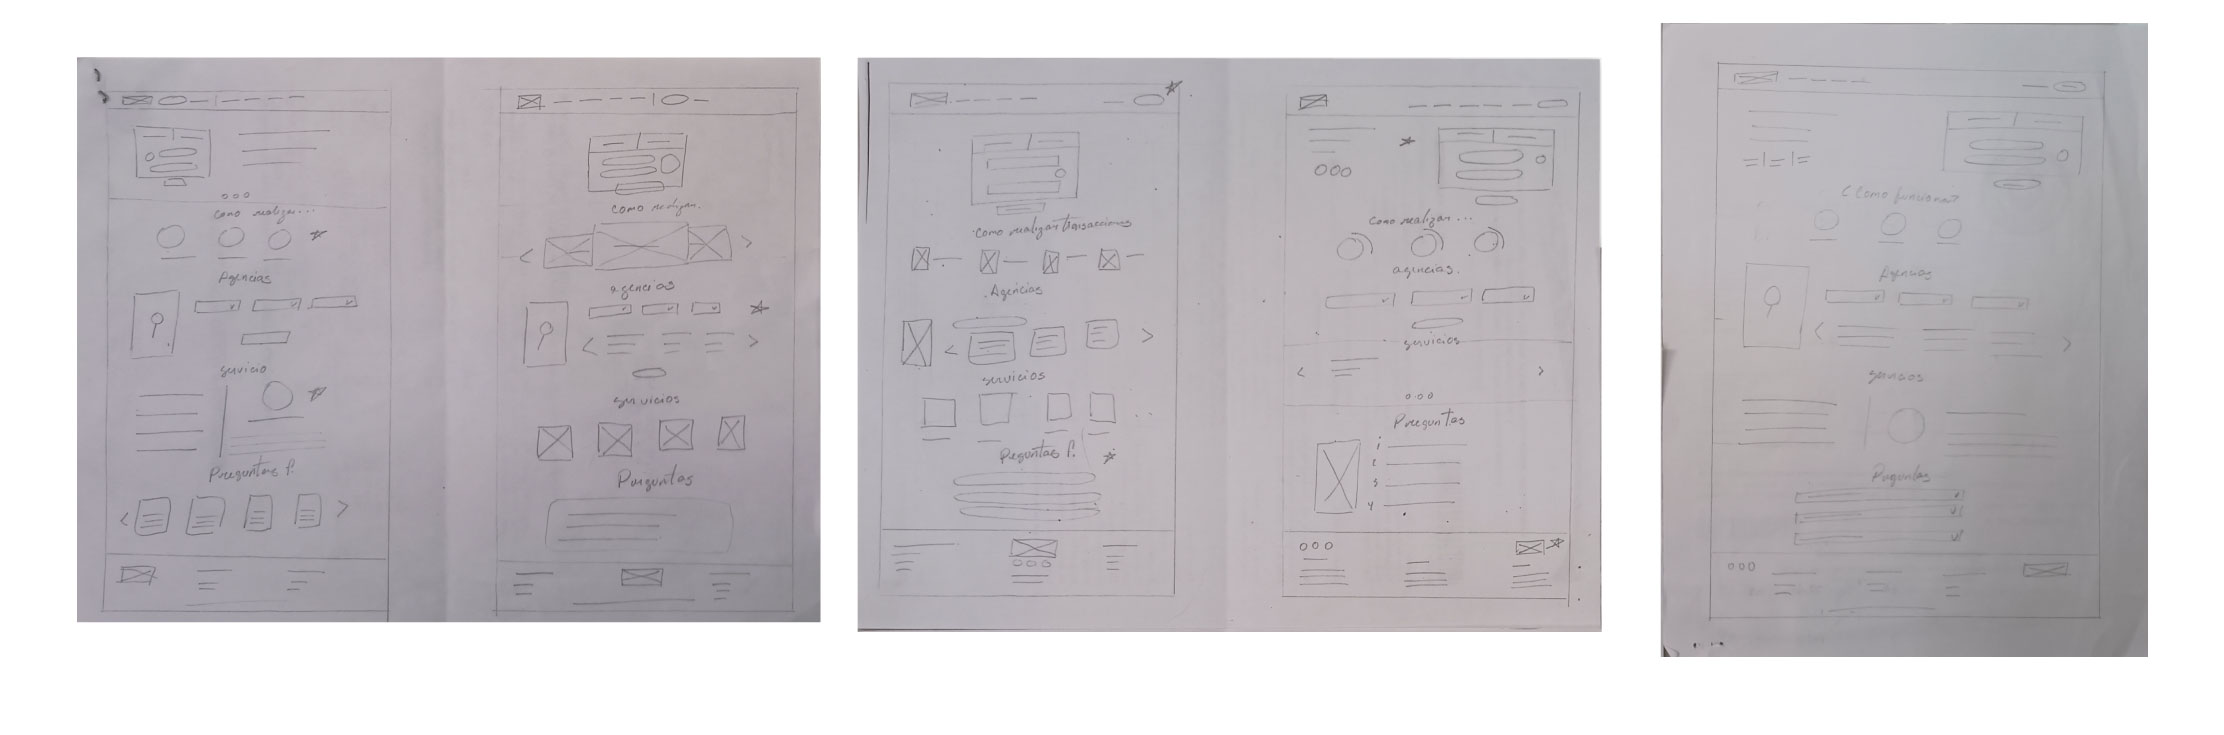 Como realizar...
Agencias
servicio
Preguntas f.
Como realizar.
agencias
servicios
Preguntas
Como realizar transacciones
Agencias
servicios
Preguntas f.
Como realizar...
agencias.
servicios
Preguntas
¿Como funciona?
Agencias
servicios
Preguntas